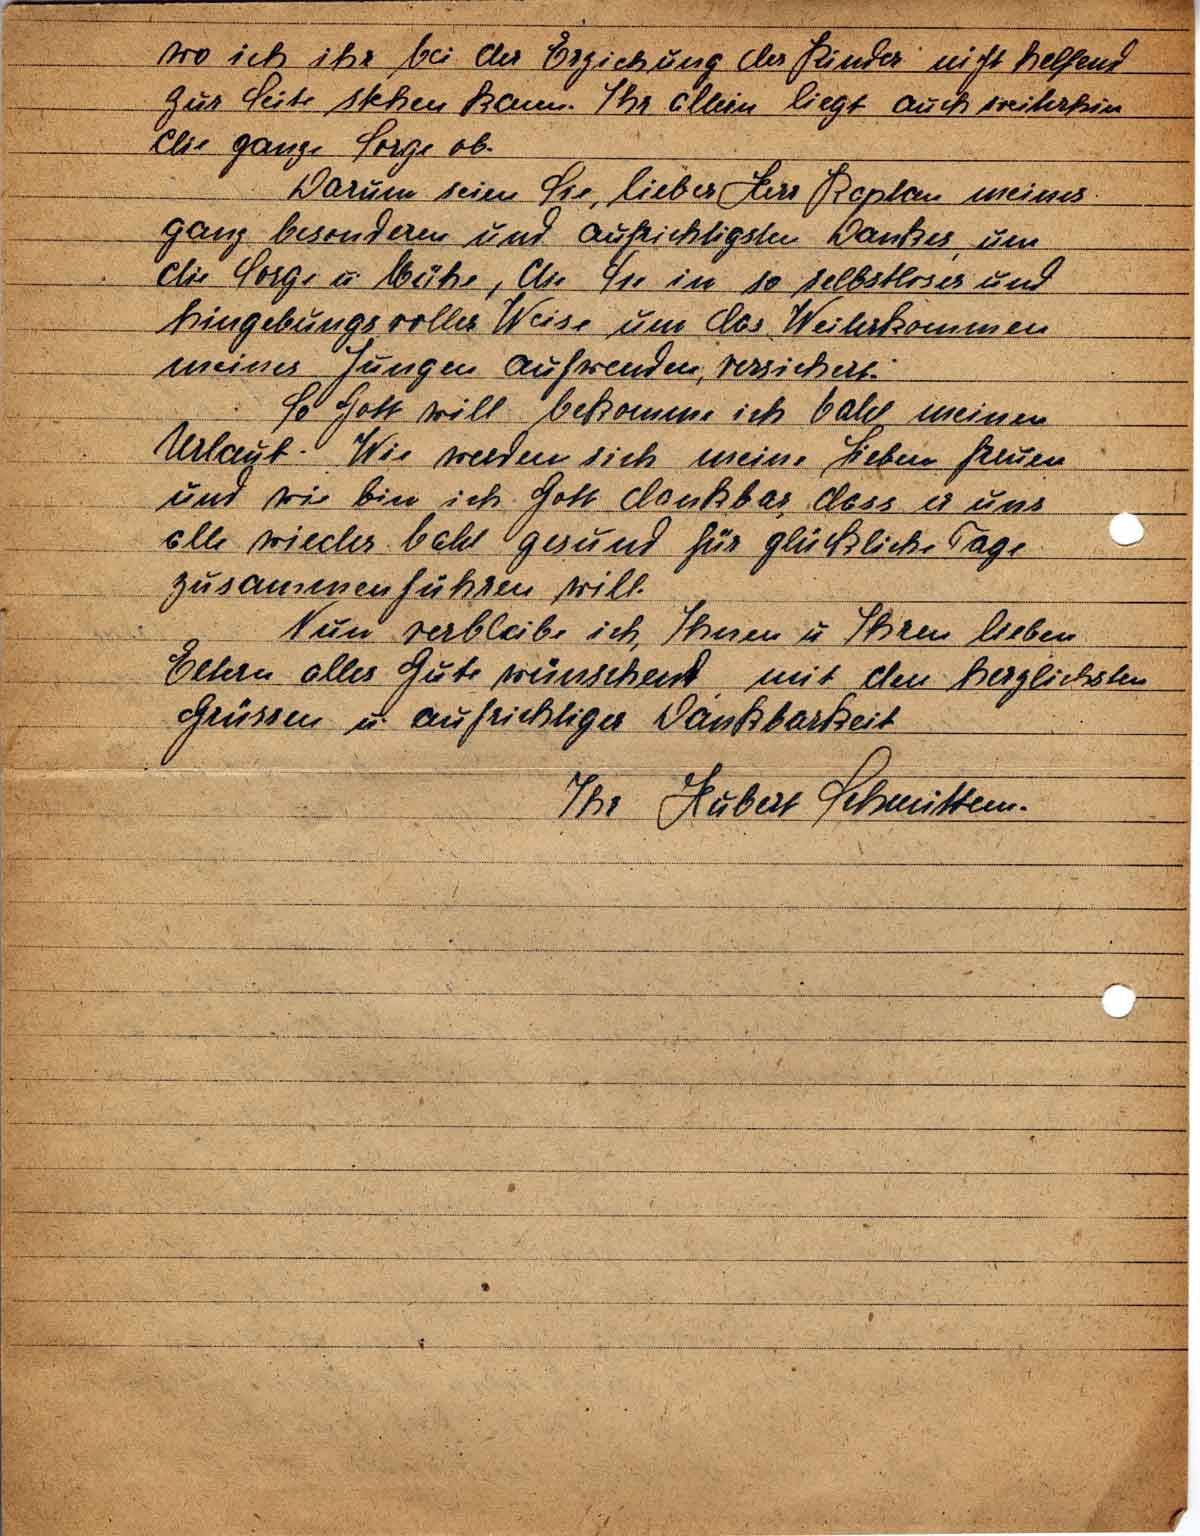 wo ich ihr bei der Erziehung der Kinder nicht helfend
zur Seite stehen kann. Ihr allein liegt auch weiterhin
die ganze Sorge ob.
Darum seien Sie, lieber Herr Kaplan meines
ganz besonderen und aufrichtigsten Dankes, um
die Sorge u Mühe, die Sie in so selbstloser und
hingebungsvoller Weise um das Weiterkommen
meines Jungen aufwenden, versichert.
So Gott will bekomme ich bald meinen
Urlaub. Wie werden sich meine Lieben freuen
und wie bin ich Gott dankbar, dass er uns
alle wieder bald gesund für glückliche Tage
zusammenführen will.
Nun verbleibe ich, Ihnen u Ihren lieben
Eltern alles Gute wünschend mit den herzlichsten
Grüssen u aufrichtiger Dankbarkeit
Ihr Hubert Schmittem.